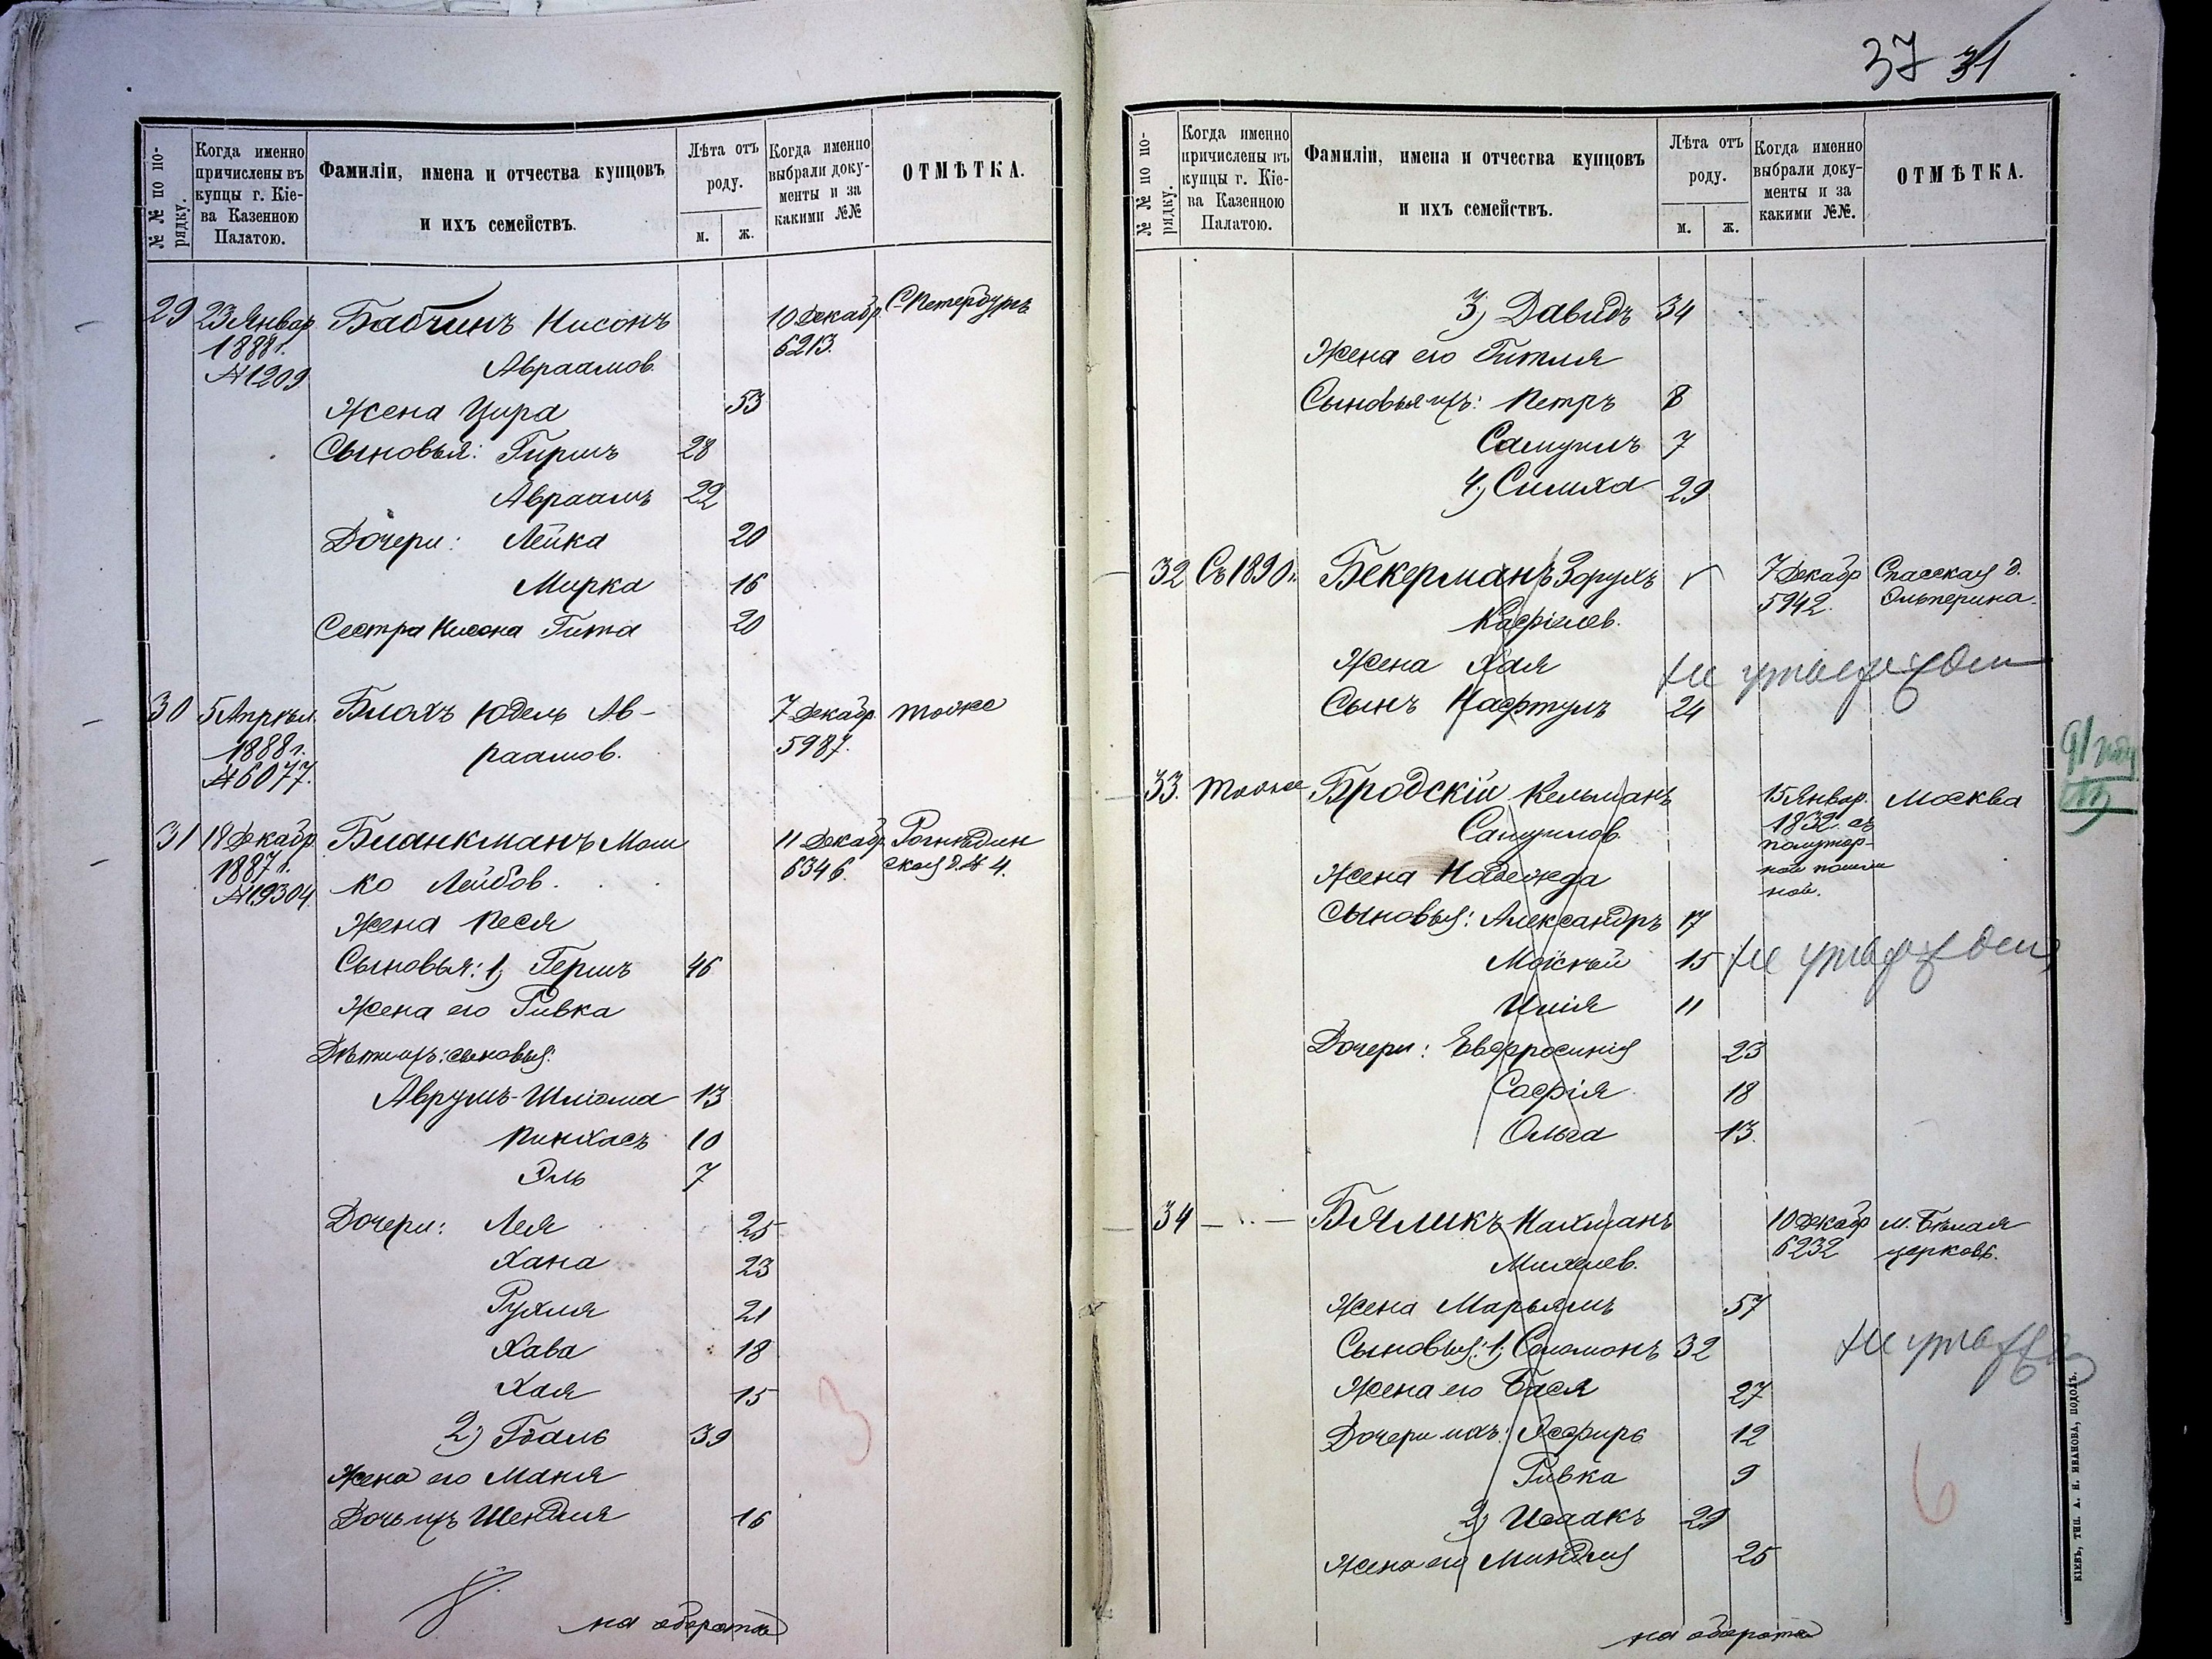 37 31
№ № по по-
рядку.
Когда именно
причислены въ
купцы г. Кіе-
ва Казенною
Палатою.
Фамиліи, имена и отчества купцовъ
и ихъ семействъ.
Лѣта отъ
роду.
м. ж.
Когда именно
выбрали доку-
менты и за
какими №№
ОТМѢТКА.
29 23 Январ. Бабчинъ Нисонъ 10 Декабр. С-Петербургъ
1888 г. 6213.
Авраамов.
№1209
Жена Цира 53
Сыновья: Гиршъ 28
Авраамъ 22
Дочери: Лейка 20
Мирка 16
Сестра Нисона Гита 20
30 5 Апрѣля Блохъ Юдель Ав- 7 Декабр. тоже
1888 г. раамов. 5987.
№6077.
31 18 Декабр. Бланкманъ Мош 11 Декабр. Рогнѣдин
1887 г. ко Лейбов. 6346. ская д. № 4.
№19304.
Жена Песя
Сыновья: 1) Гершъ 46
Жена его Ривка
Дѣти ихъ: сыновья:
Аврумъ-Шліома 13
Пинхасъ 10
Эль 7
Дочери: Лея 25
Хана 23
Рухля 21
Хава 18
Хая 15
3
2) Годаль 39
Жена его Маня
Дочь ихъ Шендля 16
на оборотѣ
№ № по по-
рядку.
Когда именно
причислены въ
купцы г. Кіе-
ва Казенною
Палатою.
Фамиліи, имена и отчества купцовъ
и ихъ семействъ.
Лѣта отъ
роду.
м. ж.
Когда именно
выбрали доку-
менты и за
какими №№.
ОТМѢТКА.
3) Давидъ 34
Жена его Гитля
Сыновья ихъ: Петръ 8
Самуилъ 7
4) Симха 29
32 Съ 1890 г. Бекерманъ Зорухъ 7 Декабр. Спасская д.
Кафріилев. 5942. Ольперина.
Жена Хая
Сынъ Нафтулъ 24
33. тоже Бродскій Кельманъ 15 Январ. Москва
Самуилов. 1892 съ
полутор-
Жена Надежда ной пошли
ной.
Сыновья: Александръ 17
Моисѣй 15
Илія 11
Дочери: Евфросинія 23
Софія 18
Ольга 13
34 — " — Бяликъ Нахманъ 10 Декабр. м. Бѣлая
Михелев. 6232 церковь.
Жена Марьямъ 57
Сыновья: 1) Соломонъ 32
Жена его Бася 27
Дочери ихъ: Эсфирь 12
Ривка 9
6
2) Исаакъ 29
Жена его Миндля 25
на оборотѣ
КІЕВЪ, ТИП. А. Н. ИВАНОВА, ПОДОЛЪ.